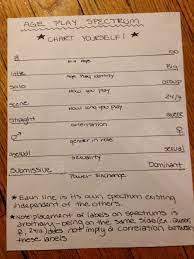 AGE PLAY SPECTRUM
★ CHART YOURSELF! ★
80
age
little Big
age play identity
solo group
how you play
scene 24/7
how long you play
straight queer
orientation
♂ ♀
gender in role
asexual sexual
sexuality
Submissive Dominant
Power Exchange
★ Each line is its own spectrum existing
independent of the others.
★ Note: placement of labels on spectrums is
arbitrary - being on the same side (ex. queer,
♀, 24/7) does not imply a correlation between
these labels